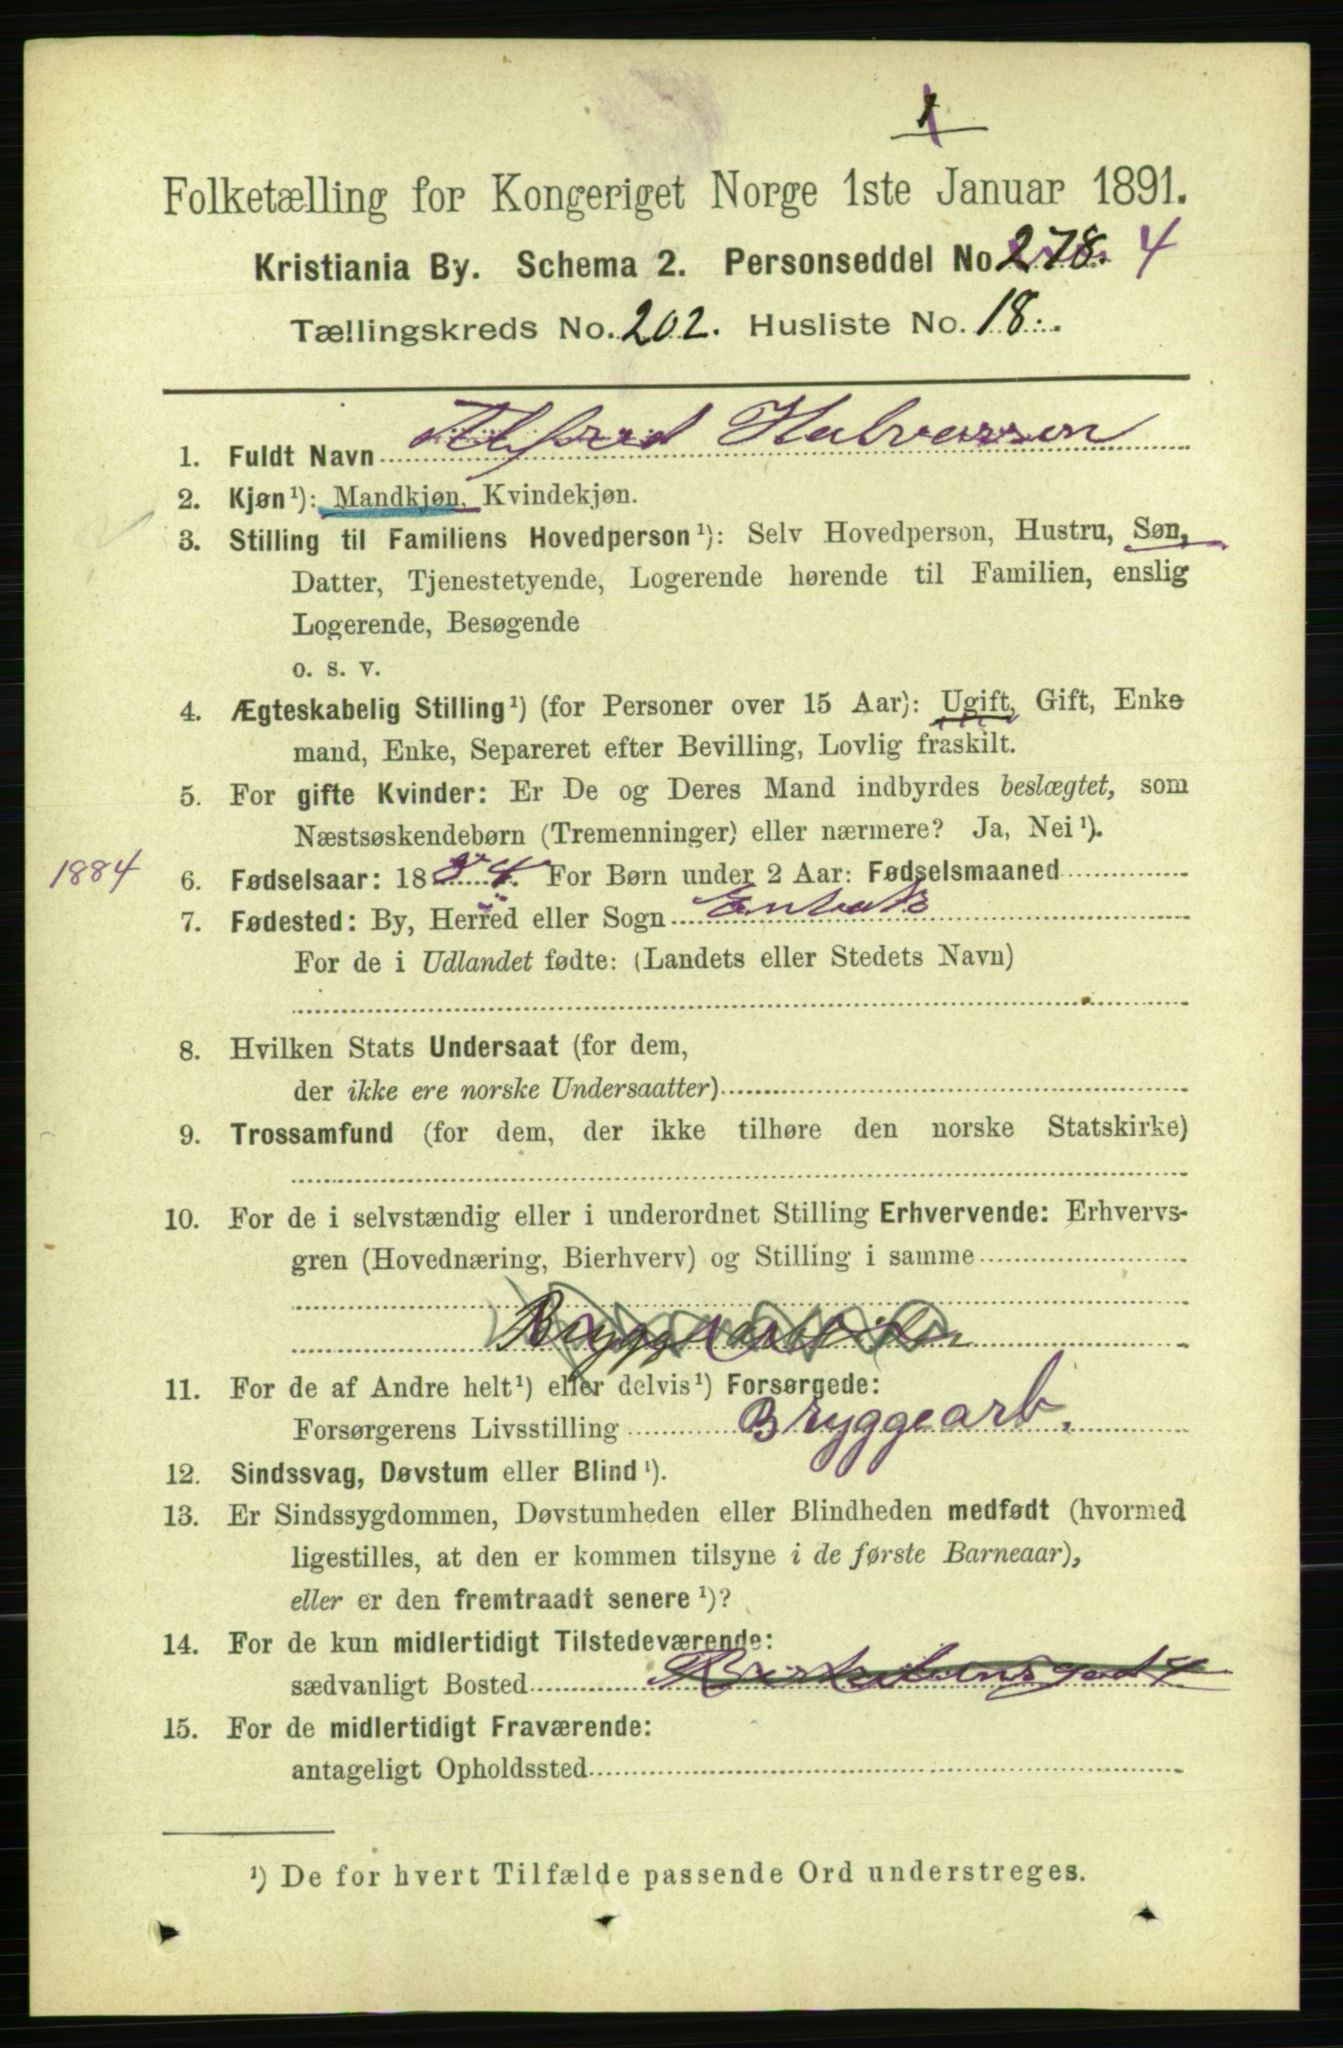 1
Folketælling for Kongeriget Norge 1ste Januar 1891.
Kristiania By. Schema 2. Personseddel No. 278. 4
Tællingskreds No. 202. Husliste No. 18.
1. Fuldt Navn Alfred Halvorsen
2. Kjøn¹): Mandkjøn, Kvindekjøn.
3. Stilling til Familiens Hovedperson¹): Selv Hovedperson, Hustru, Søn,
Datter, Tjenestetyende, Logerende hørende til Familien, enslig
Logerende, Besøgende
o. s. v.
4. Ægteskabelig Stilling¹) (for Personer over 15 Aar): Ugift, Gift, Enke
mand, Enke, Separeret efter Bevilling, Lovlig fraskilt.
5. For gifte Kvinder: Er De og Deres Mand indbyrdes beslægtet, som
Næstsøskendebørn (Tremenninger) eller nærmere? Ja, Nei¹).
1884 6. Fødselsaar: 1884. For Børn under 2 Aar: Fødselsmaaned
7. Fødested: By, Herred eller Sogn
For de i Udlandet fødte: (Landets eller Stedets Navn)
8. Hvilken Stats Undersaat (for dem,
der ikke ere norske Undersaatter)
9. Trossamfund (for dem, der ikke tilhøre den norske Statskirke)
10. For de i selvstændig eller i underordnet Stilling Erhvervende: Erhvervs-
gren (Hovednæring, Bierhverv) og Stilling i samme
Bryggearbeider
11. For de af Andre helt¹) eller delvis¹) Forsørgede:
Forsørgerens Livsstilling Bryggearb.
12. Sindssvag, Døvstum eller Blind¹).
13. Er Sindssygdommen, Døvstumheden eller Blindheden medfødt (hvormed
ligestilles, at den er kommen tilsyne i de første Barneaar),
eller er den fremtraadt senere¹)?
14. For de kun midlertidigt Tilstedeværende:
sædvanligt Bosted
15. For de midlertidigt Fraværende:
antageligt Opholdssted
¹) De for hvert Tilfælde passende Ord understreges.